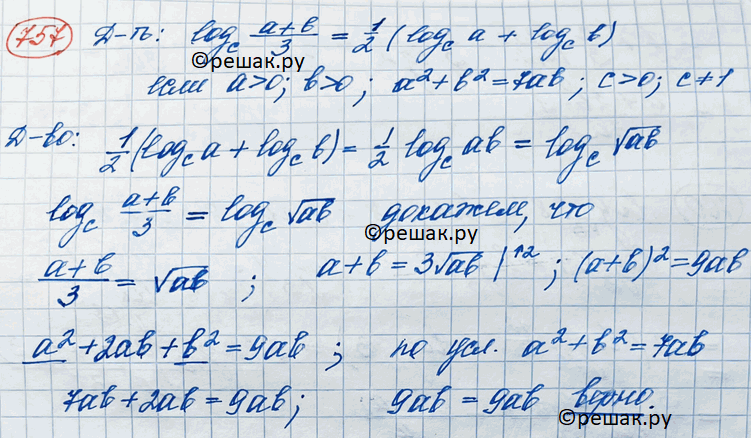 757 Д-ть: log_c (a+b)/3 = 1/2 (log_c a + log_c b)
©решак.ру
если a>0; b>0; a²+b²=7ab; c>0; c≠1
Д-во: 1/2 (log_c a + log_c b) = 1/2 log_c ab = log_c √ab
log_c (a+b)/3 = log_c √ab докажем, что
©решак.ру
(a+b)/3 = √ab ; a+b = 3√ab |↑2 ; (a+b)²=9ab
a²+2ab+b²=9ab ; по усл. a²+b²=7ab
7ab+2ab=9ab; 9ab=9ab верно.
©решак.ру